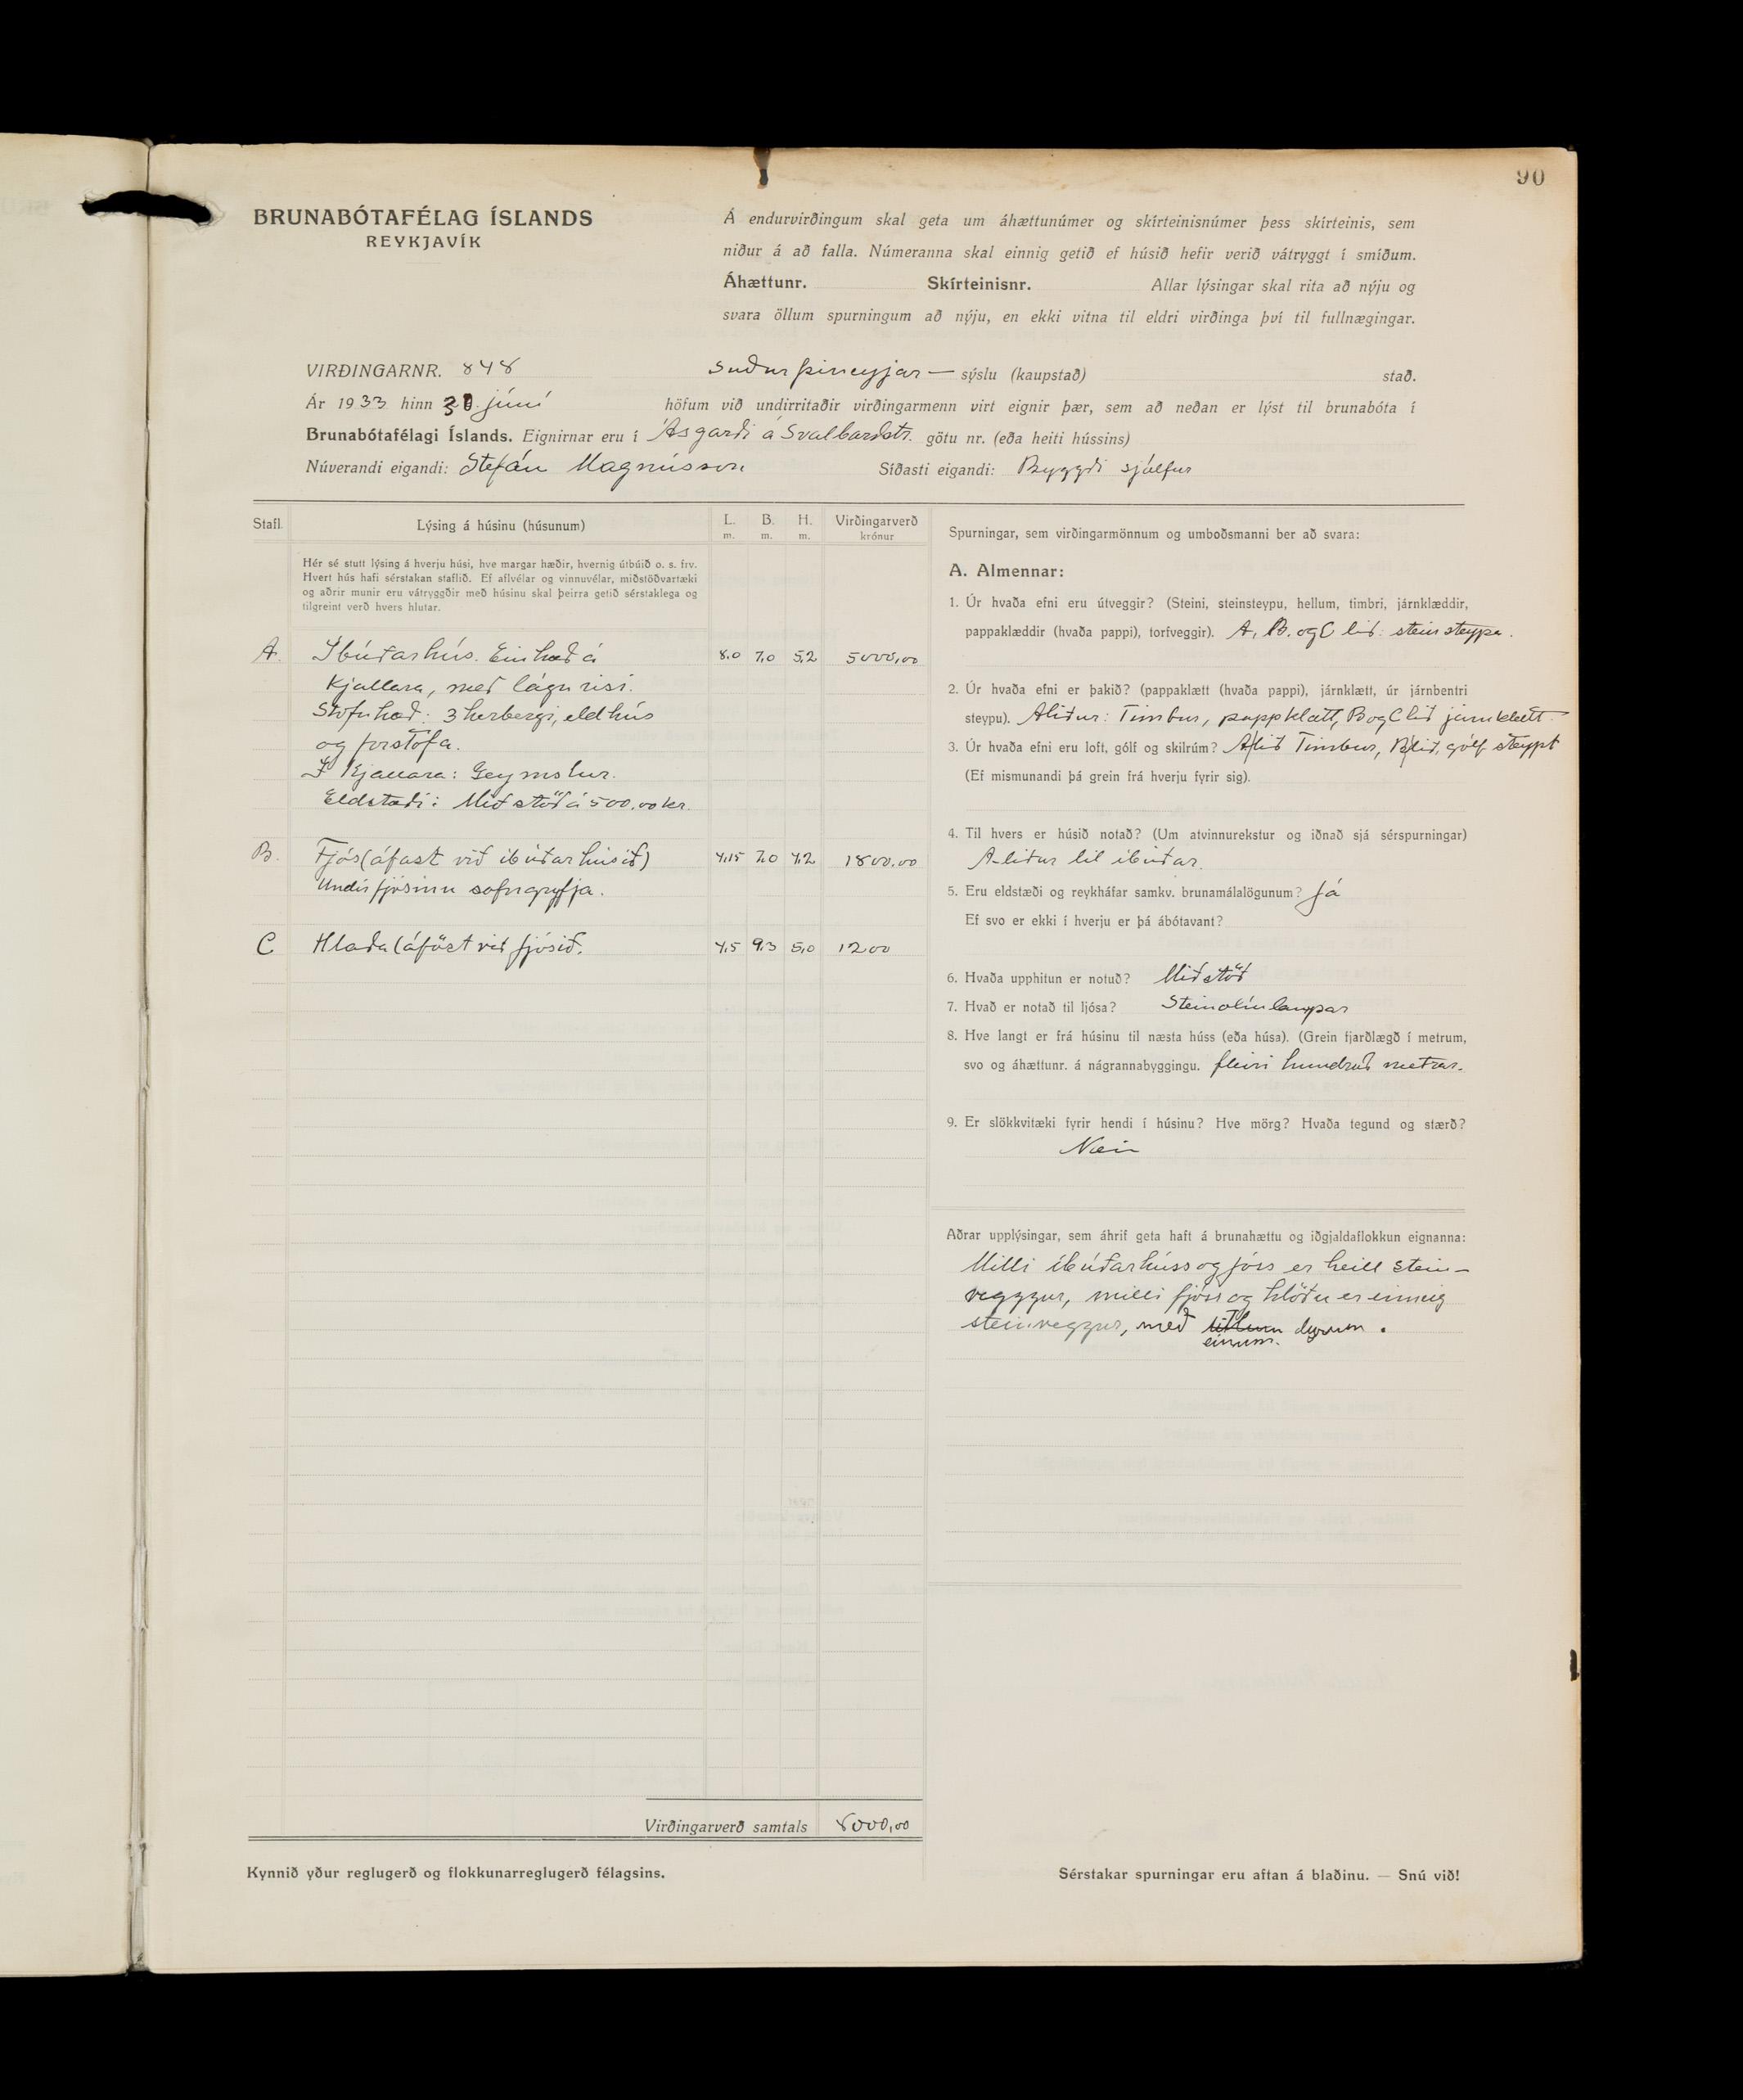 90
BRUNABÓTAFÉLAG ÍSLANDS
REYKJAVÍK
Á endurvirðingum skal geta um áhættunúmer og skírteinisnúmer þess skírteinis, sem
niður á að falla. Númeranna skal einnig getið ef húsið hefir verið vátryggt í smíðum.
Áhættunr. Skírteinisnr. Allar lýsingar skal rita að nýju og
svara öllum spurningum að nýju, en ekki vitna til eldri virðinga því til fullnægingar.
VIRÐINGARNR. 848 Suðurþineyjar — sýslu (kaupstað) stað.
Ár 1933 hinn 30. júní höfum við undirritaðir virðingarmenn virt eignir þær, sem að neðan er lýst til brunabóta í
Brunabótafélagi Íslands. Eignirnar eru í Ásgarði á Svalbarðstr. götu nr. (eða heiti hússins)
Núverandi eigandi: Stefán Magnússon Síðasti eigandi: Byggði sjálfur
Stafl. Lýsing á húsinu (húsunum) L. m. B. m. H. m. Virðingarverð krónur
Hér sé stutt lýsing á hverju húsi, hve margar hæðir, hvernig útbúið o. s. frv.
Hvert hús hafi sérstakan staflið. Ef aflvélar og vinnuvélar, miðstöðvartæki
og aðrir munir eru vátryggðir með húsinu skal þeirra getið sérstaklega og
tilgreint verð hvers hlutar.
A. Íbúðarhús. Ein hæð á 8,0 7,0 5,2 5000,00
kjallara, með lágu risi.
Stofuhæð: 3 herbergi, eldhús
og forstofa.
Í Kjallara: Geymslur.
Eldstæði: Miðstöð á 500.00 kr.
B. Fjós (áfast við íbúðarhúsið) 4,15 7,0 4,2 1800,00
Undir fjósinu safngryfja.
C Hlaða (áföst við fjósið. 4,5 9,3 5,0 1200
Virðingarverð samtals 8000,00
Kynnið yður reglugerð og flokkunarreglugerð félagsins.
Spurningar, sem virðingarmönnum og umboðsmanni ber að svara:
A. Almennar:
1. Úr hvaða efni eru útveggir? (Steini, steinsteypu, hellum, timbri, járnklæddir,
pappaklæddir (hvaða pappi), torfveggir). A, B. og C lið: steinsteypa.
2. Úr hvaða efni er þakið? (pappaklætt (hvaða pappi), járnklætt, úr járnbentri
steypu). A liður: Timbur, pappklætt, B og C lið járnklætt
3. Úr hvaða efni eru loft, gólf og skilrúm? A/lið Timbur, B/lið, gólf steypt
(Ef mismunandi þá grein frá hverju fyrir sig).
4. Til hvers er húsið notað? (Um atvinnurekstur og iðnað sjá sérspurningar)
A-liður til íbúðar.
5. Eru eldstæði og reykháfar samkv. brunamálalögunum? Já
Ef svo er ekki í hverju er þá ábótavant?
6. Hvaða upphitun er notuð? Miðstöð
7. Hvað er notað til ljósa? Steinolíulampar
8. Hve langt er frá húsinu til næsta húss (eða húsa). (Grein fjarðlægð í metrum,
svo og áhættunr. á nágrannabyggingu. fleiri hundruð metrar.
9. Er slökkvitæki fyrir hendi í húsinu? Hve mörg? Hvaða tegund og stærð?
Nei
Aðrar upplýsingar, sem áhrif geta haft á brunahættu og iðgjaldaflokkun eignanna:
Milli íbúðarhúss og fjóss er heill stein-
veggur, milli fjóss og hlöðu er einnig
steinveggur, með dyrum.
einum.
Sérstakar spurningar eru aftan á blaðinu. — Snú við!